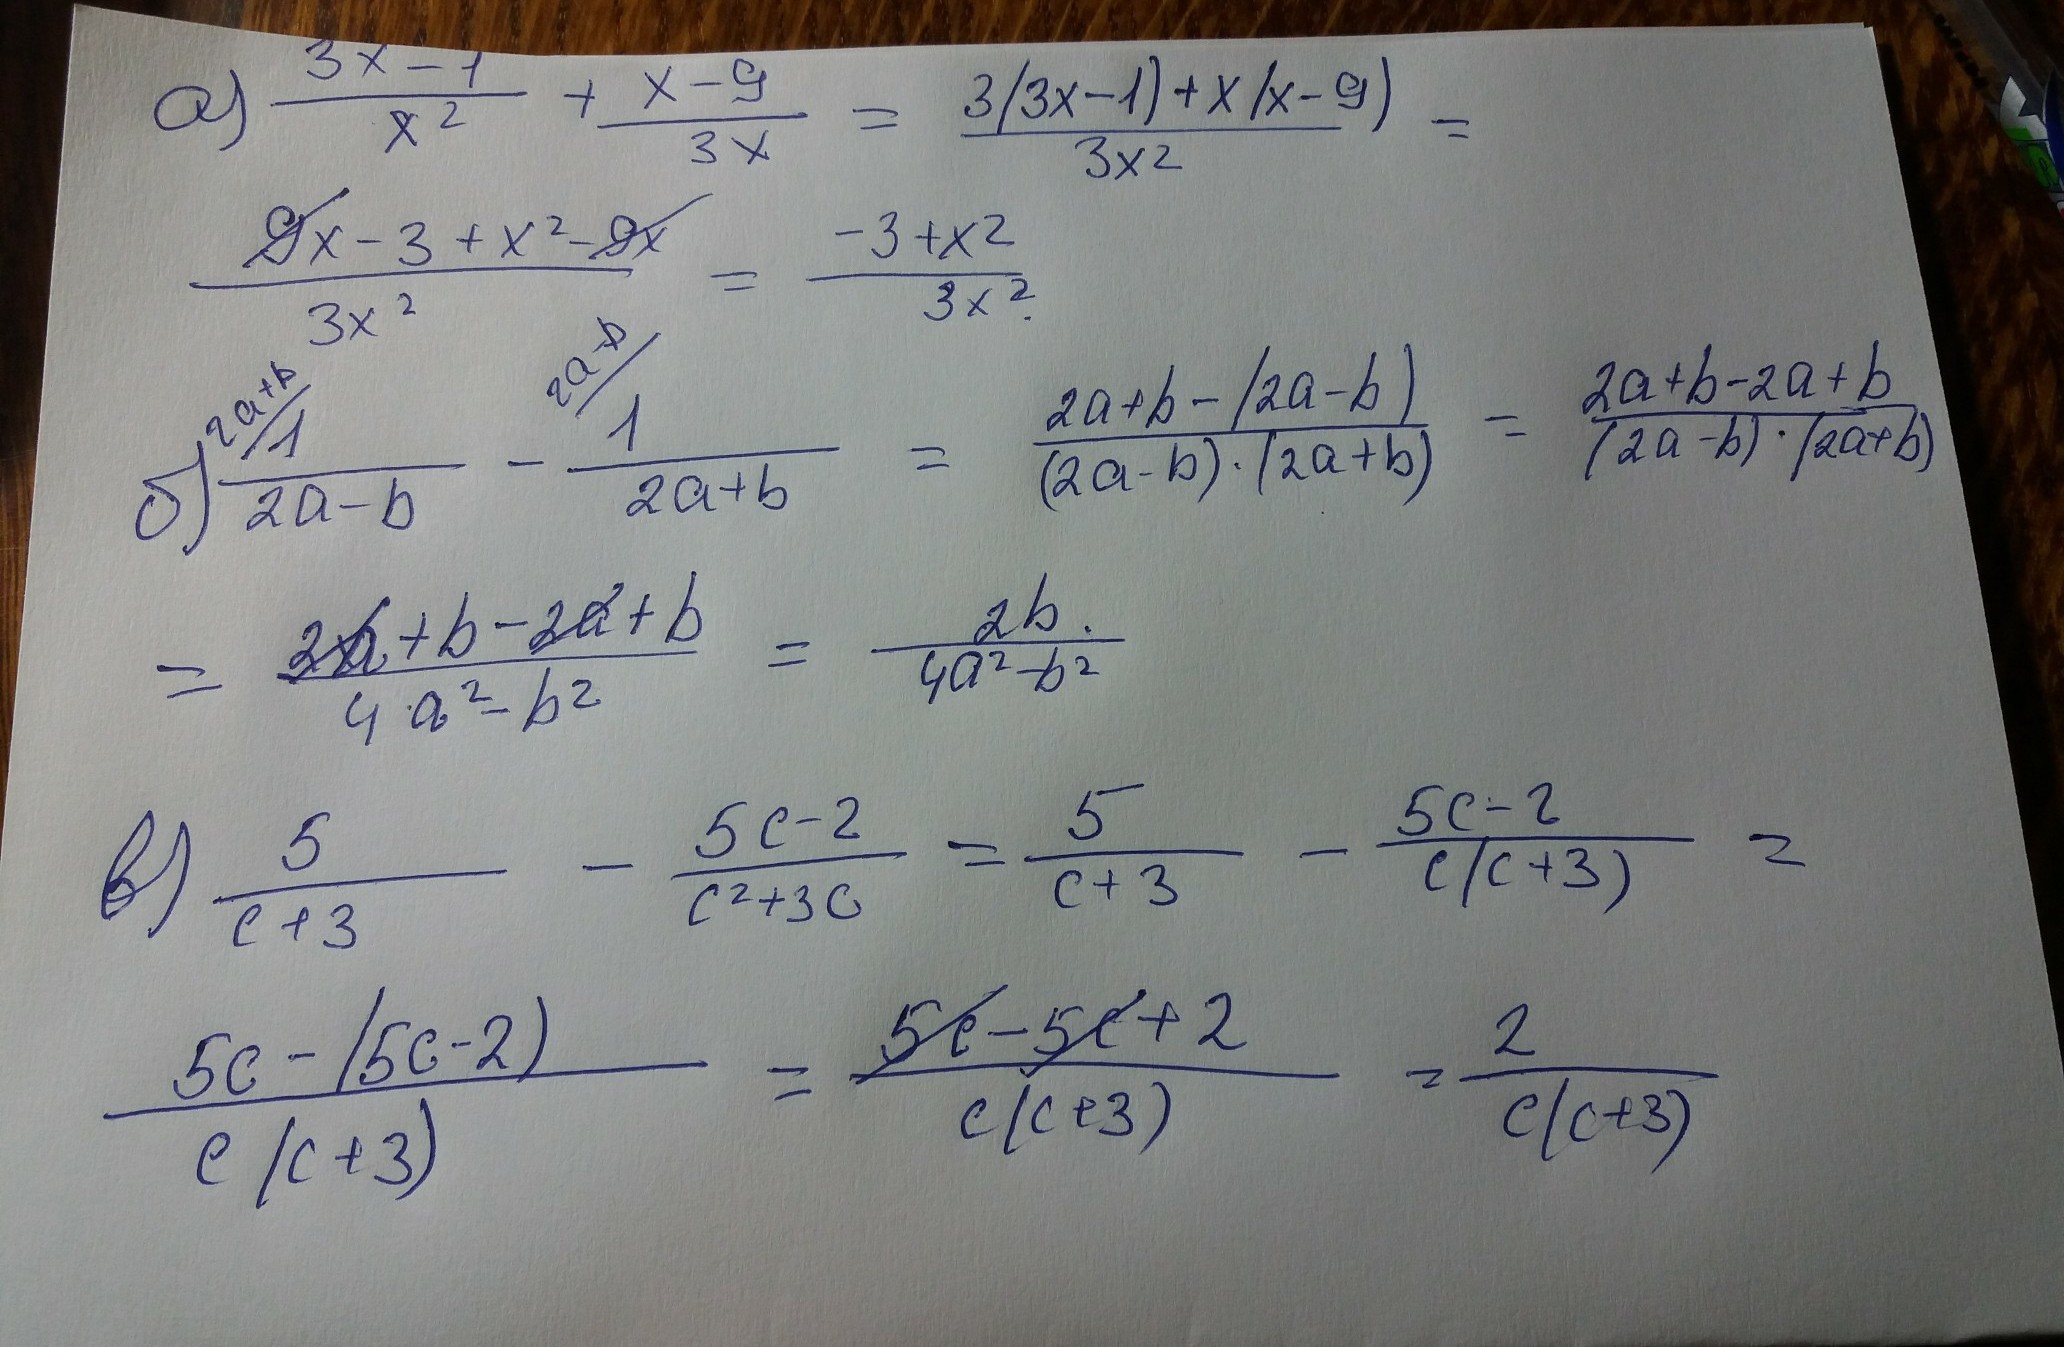 а) (3x-1)/x² + (x-9)/3x = (3(3x-1)+x(x-9))/3x² =
(9x-3+x²-9x)/3x² = (-3+x²)/3x².
б) 2a+b/ 1/(2a-b) - 2a-b/ 1/(2a+b) = (2a+b-(2a-b))/((2a-b)·(2a+b)) = (2a+b-2a+b)/((2a-b)·(2a+b))
= (2a+b-2a+b)/(4a²-b²) = 2b/(4a²-b²).
в) 5/(c+3) - (5c-2)/(c²+3c) = 5/(c+3) - (5c-2)/(c(c+3)) =
(5c-(5c-2))/(c(c+3)) = (5c-5c+2)/(c(c+3)) = 2/(c(c+3))